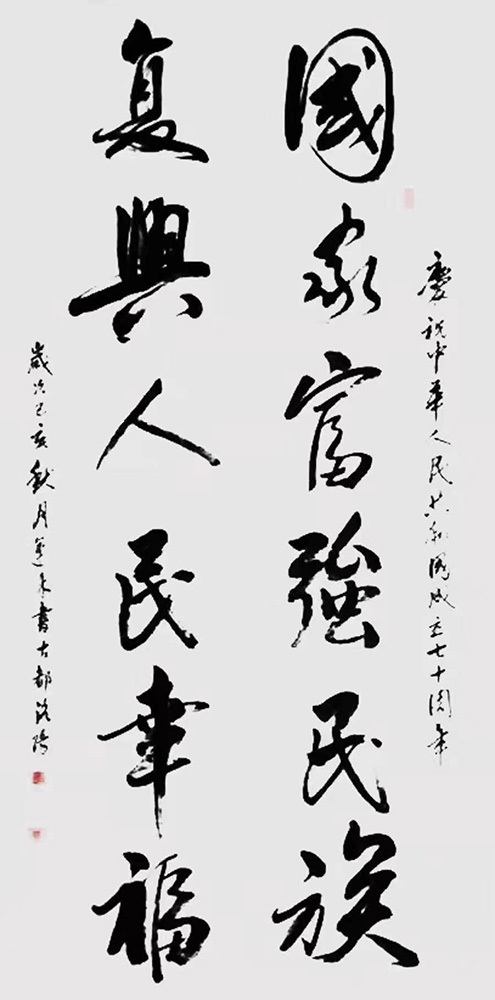 慶祝中華人民共和國成立七十周年
國家富強民族
复興人民幸福
歲次己亥秋月書古都洛陽